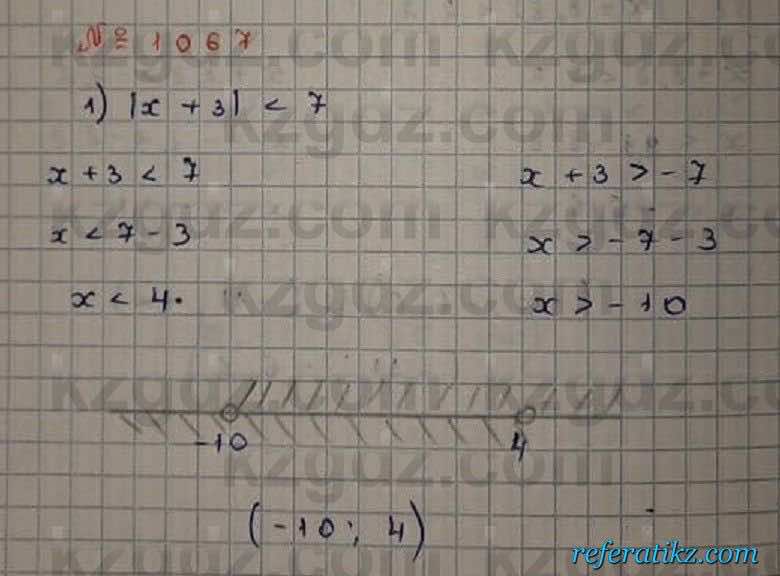 № 1067
1) |x + 3| < 7
x + 3 < 7 x + 3 > -7
x < 7 - 3 x > -7 - 3
x < 4. x > -10
-10 4
(-10; 4)
kzgdz.com
referatikz.com